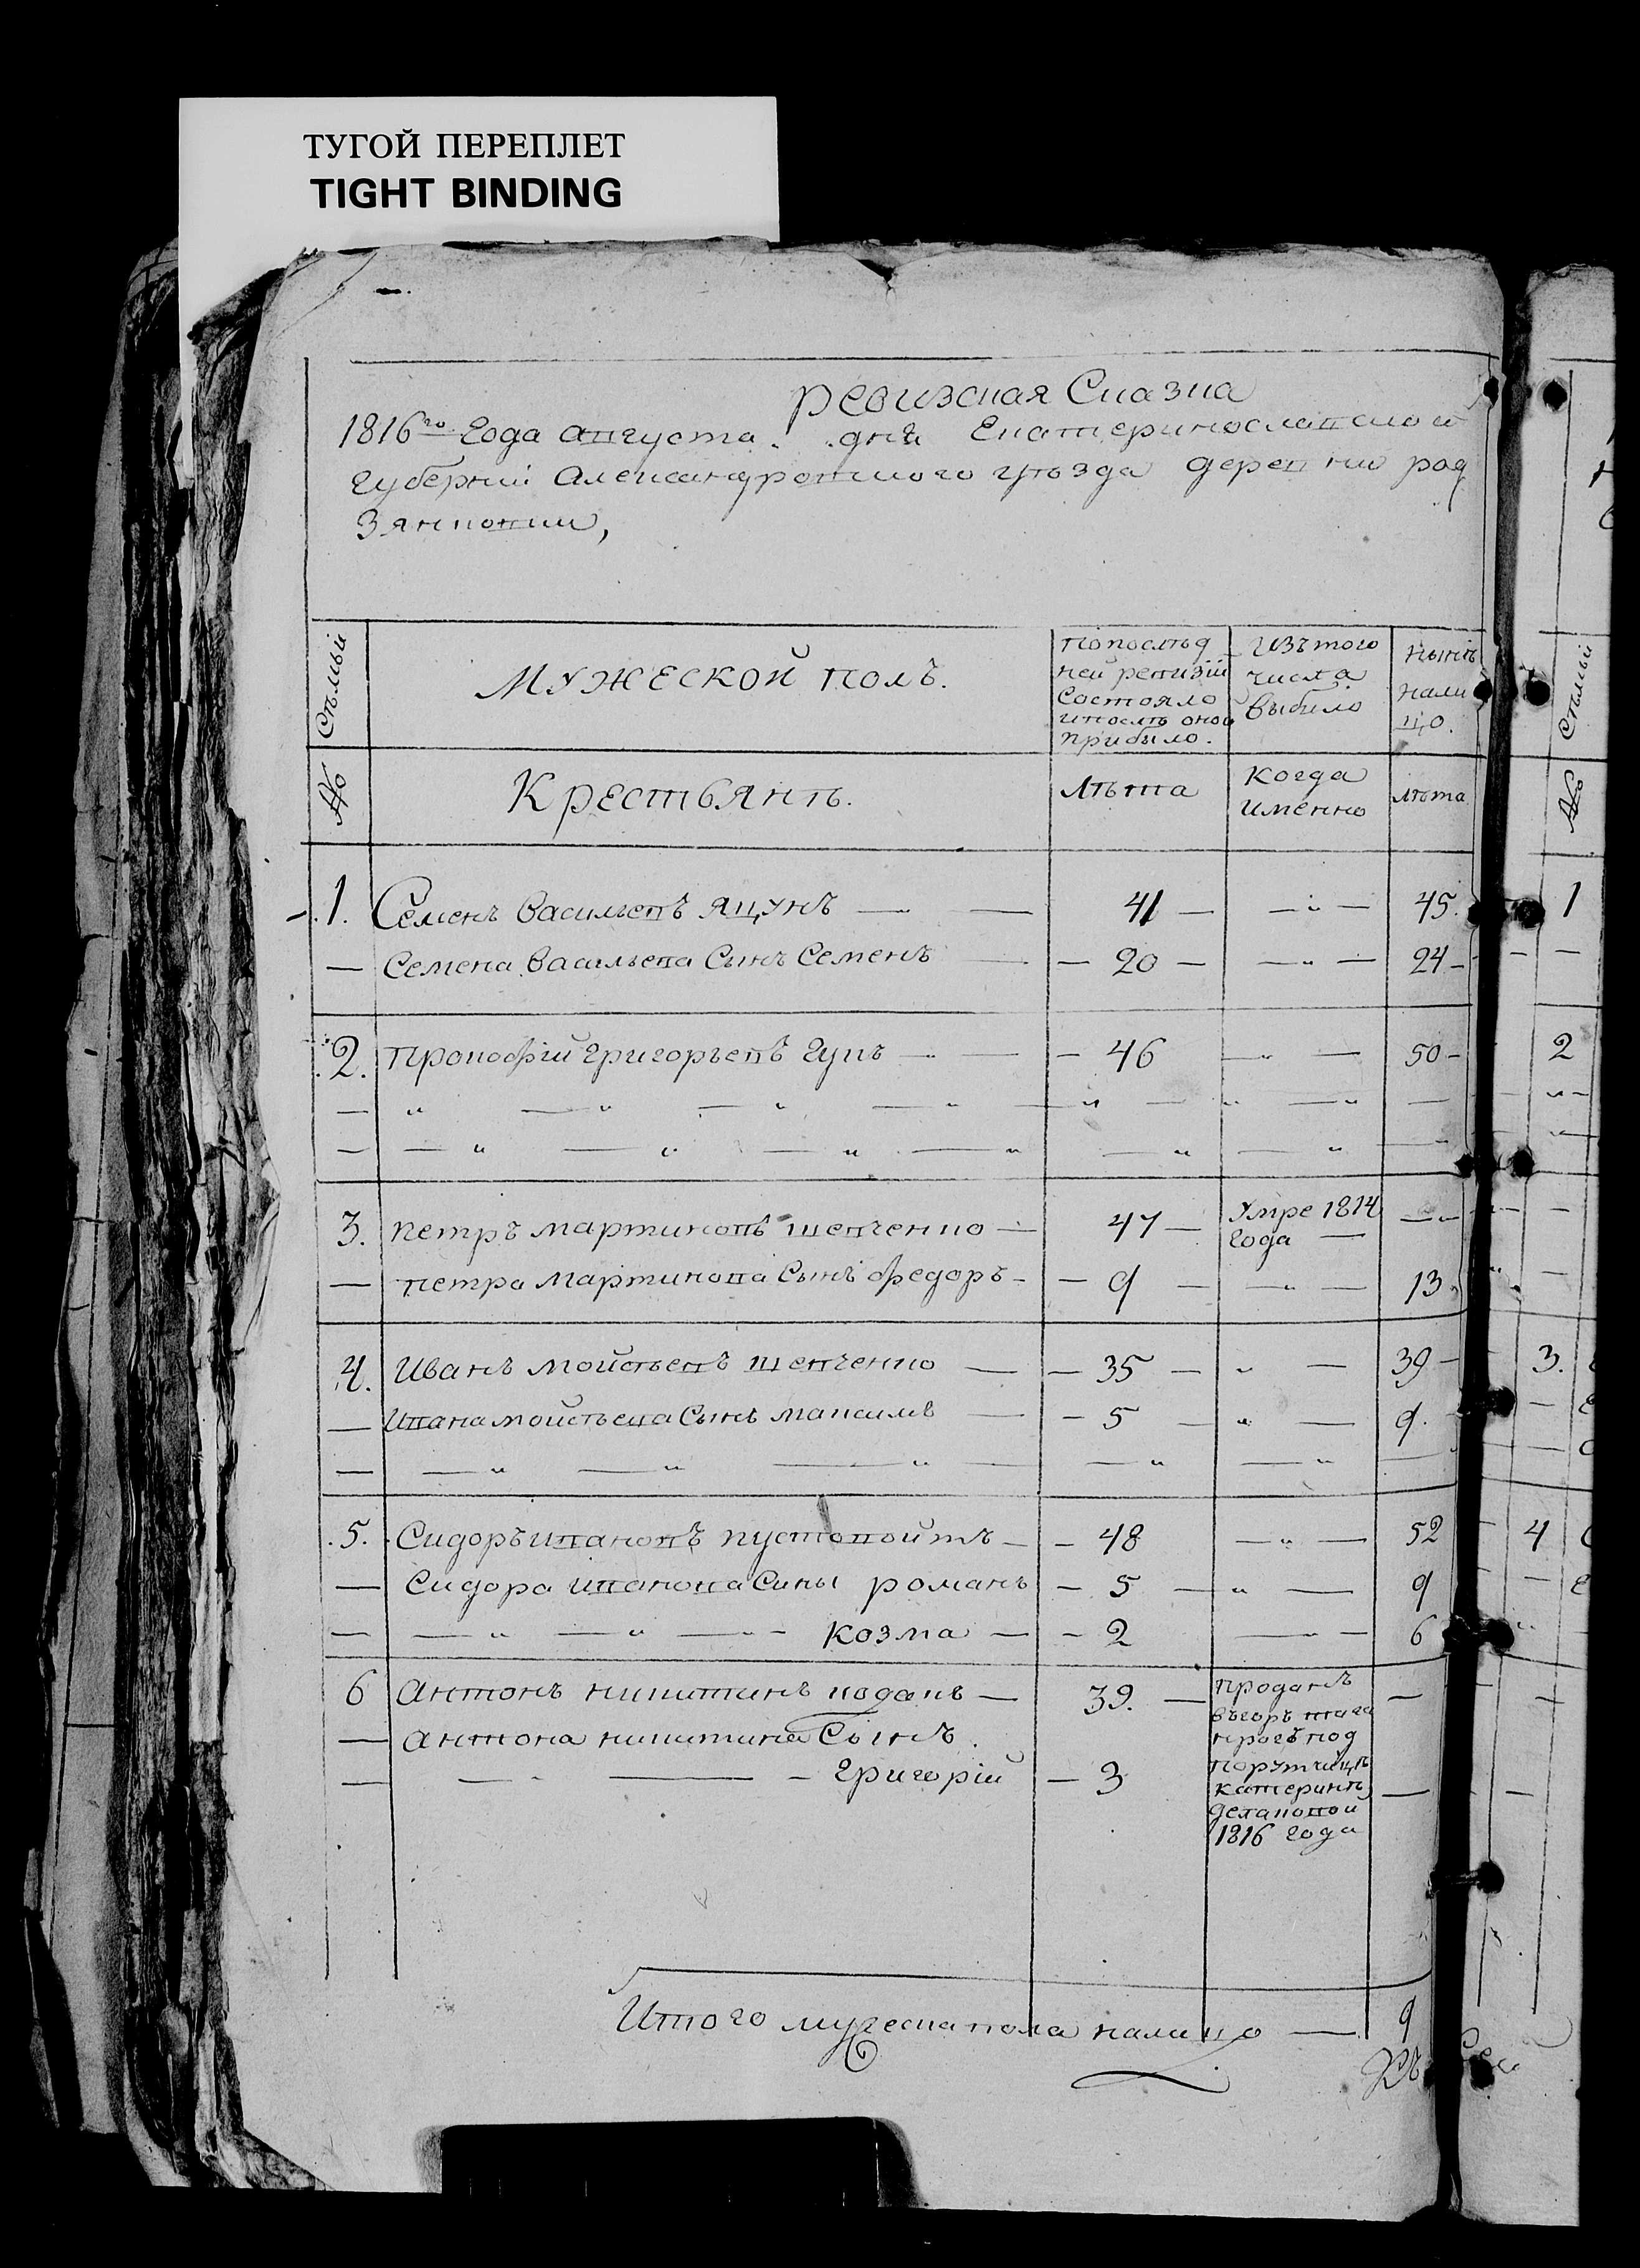 ТУГОЙ ПЕРЕПЛЕТ
TIGHT BINDING
Ревизская Сказка
1816го Года августа . . дня Екатеринославской
губернии Александровского уѣзда деревни
Семьи
Мужеской полъ.
по послѣд
ней ревизiи
Состояло
и послѣ оной
прибыло.
Изъ того
числа
выбыло
нынѣ
нали
цо.
№
Крестьянъ.
Лѣта
Когда
именно
лѣта
1. Семенъ Васильевъ Яцунъ — — 41 — — „ — 45.
— Семена Васильева Сынъ Семенъ — — 20 — — „ — 24 —
2. Прокофiй Григорьевъ Гукъ — — — 46 — „ — 50 —
3. петръ мартиновъ шевченко — 47 — Умре 1814 — „ —
года —
— петра мартинова Сынъ федоръ — — 9 — — „ — 13
4. Иванъ мойсѣевъ шевченко — — 35 — „ — 39 —
— Ивана мойсѣева Сынъ максимъ — — 5 — „ — 9.
.5. Сидоръ ивановъ пустовойтъ — — 48 — „ — 52
— Сидора иванова Сины романъ — 5 — „ — 9
— — „ — „ — козма — — 2 — „ — 6
6 антонъ никитинъ — 39. — проданъ —
въ горъ тага
нрогъ под
— антона никитина Сынъ.
— — — Григорiй — 3 порутчицѣ
катеринѣ —
1816 года
Итого мужеска пола налицо — 9
1
2
3.
4
Семьи
№